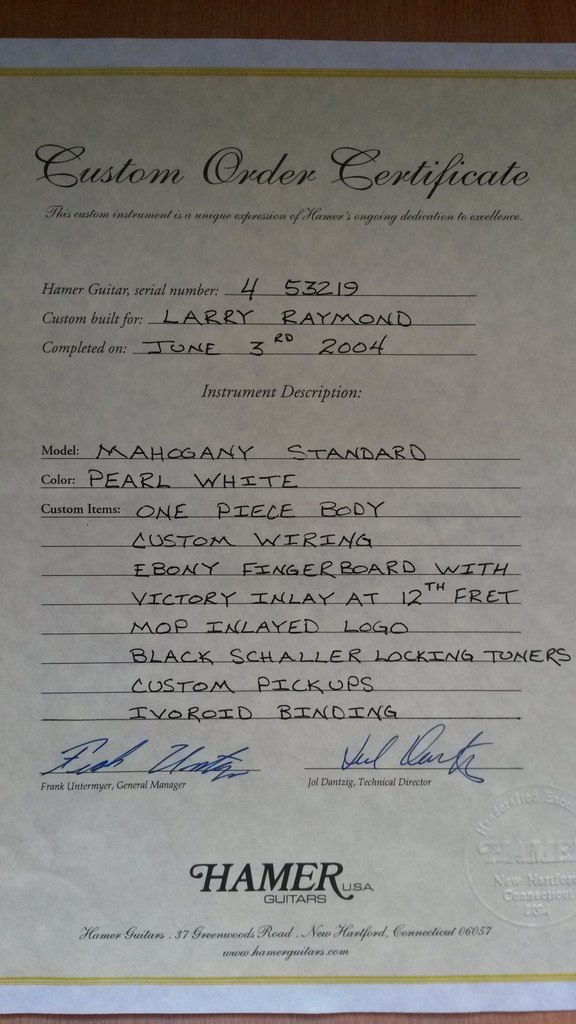 Custom Order Certificate
This custom instrument is a unique expression of Hamer's ongoing dedication to excellence.
Hamer Guitar, serial number: 4 53219
Custom built for: LARRY RAYMOND
Completed on: JUNE 3RD 2004
Instrument Description:
Model: MAHOGANY STANDARD
Color: PEARL WHITE
Custom Items: ONE PIECE BODY
CUSTOM WIRING
EBONY FINGERBOARD WITH
VICTORY INLAY AT 12TH FRET
MOP INLAYED LOGO
BLACK SCHALLER LOCKING TUNERS
CUSTOM PICKUPS
IVOROID BINDING
Frank Untermyer, General Manager
Jol Dantzig, Technical Director
Handcrafted
HAMER
New Hartford
Connecticut
USA
HAMER U.S.A.
GUITARS
Hamer Guitars . 37 Greenwoods Road . New Hartford, Connecticut 06057
www.hamerguitars.com